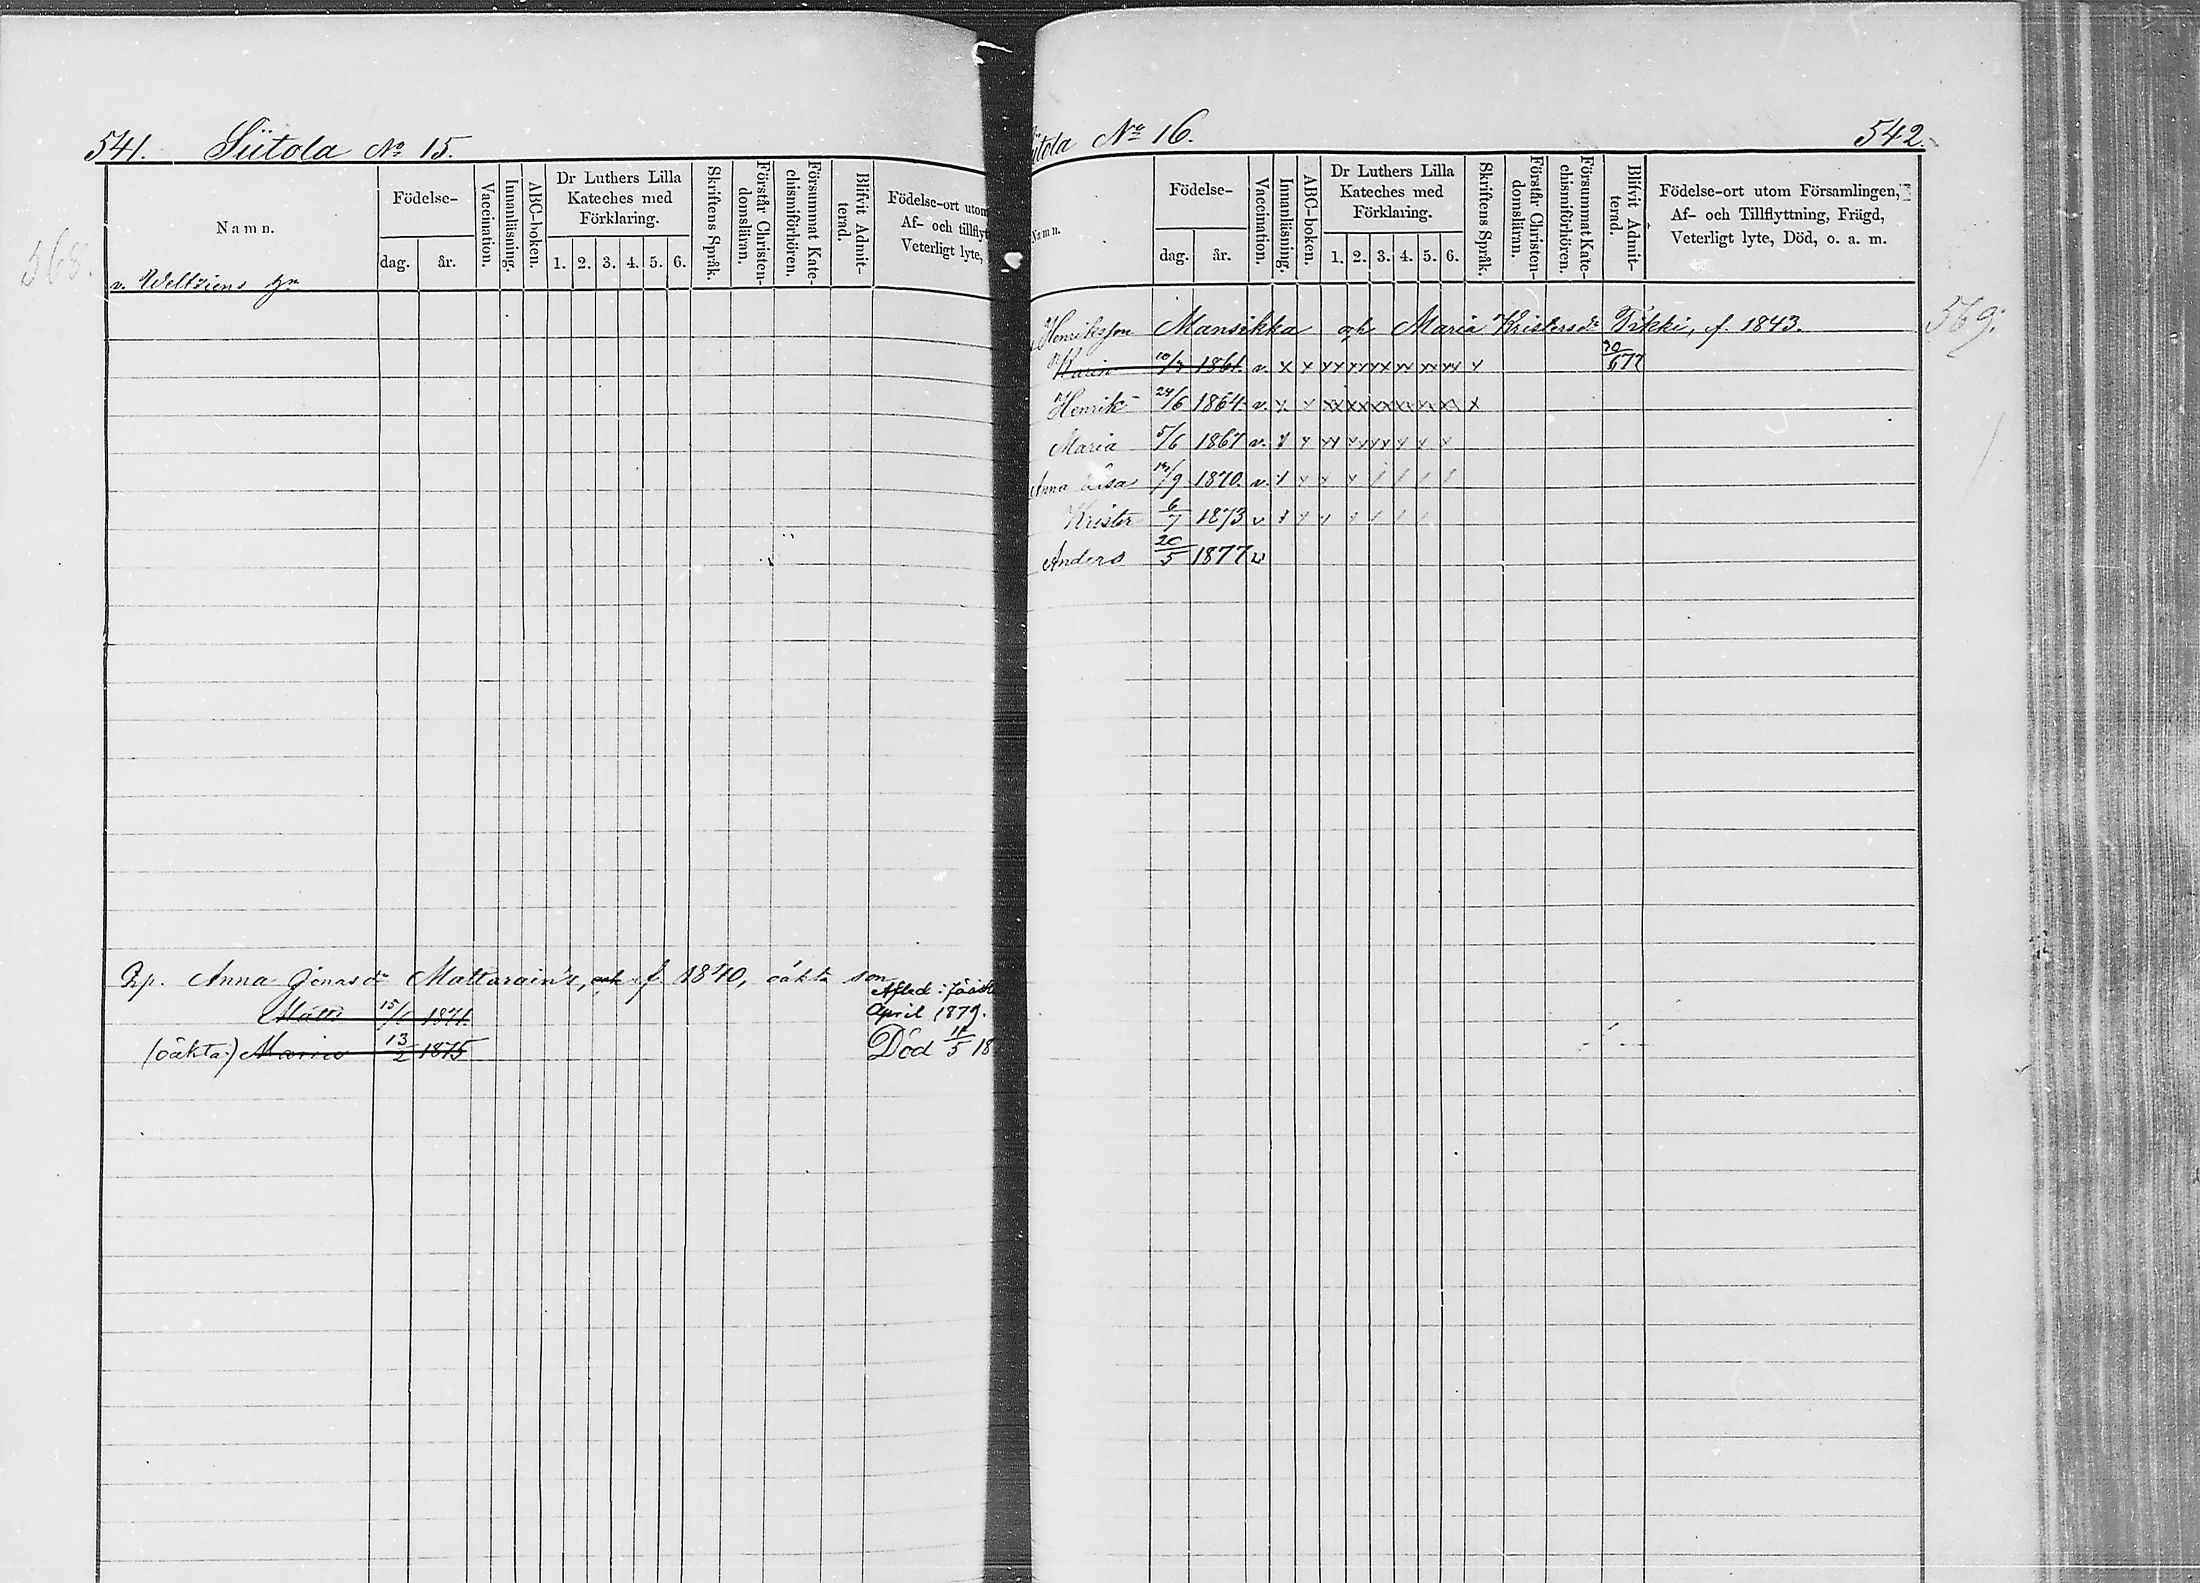 541. Siitola No 15.
568.
Namn.
Födelse-
dag. år.
Vaccination.
Innanläsning.
ABC-boken.
Dr Luthers Lilla
Kateches med
Förklaring.
1. 2. 3. 4. 5. 6.
Skriftens Språk.
Förstår Christen-
domsläran.
Försummat Kate-
chismiförhören.
Blifvit Admit-
terad.
Födelse-ort utom
Af- och tillflyt
Veterligt lyte,
v. Weltziens
Anna Jonasdr f. 1840, oäkta son
Matts 15/ 1871.
Afled i
April 1879.
(oäkta) Maria 13/2 1875
Död 11/5 18
No 16. 542.
569.
Namn.
Födelse-
dag. år.
Vaccination.
Innanläsning.
ABC-boken.
Dr Luthers Lilla
Kateches med
Förklaring.
1. 2. 3. 4. 5. 6.
Skriftens Språk.
Förstår Christen-
domsläran.
Försummat Kate-
chismiförhören.
Blifvit Admit-
terad.
Födelse-ort utom Församlingen,
Af- och Tillflyttning, Frägd,
Veterligt lyte, Död, o. a. m.
Henriksson Mansikka o h Maria Kristersdr Tikki, f. 1843.
Karin 10/7 1861. v. x x xx xx xx xx xx xx x 30/6 77
Henrik 24/6 1864. v. x x xx xx xx xx xx xx x
Maria 5/6 1867 v. x x xx xx xx x x x
Anna Lisa /9 1870. v. x x x x / / / /
Krister 6/7 1873 v x x x x x / /
Anders 20/5 1877 v